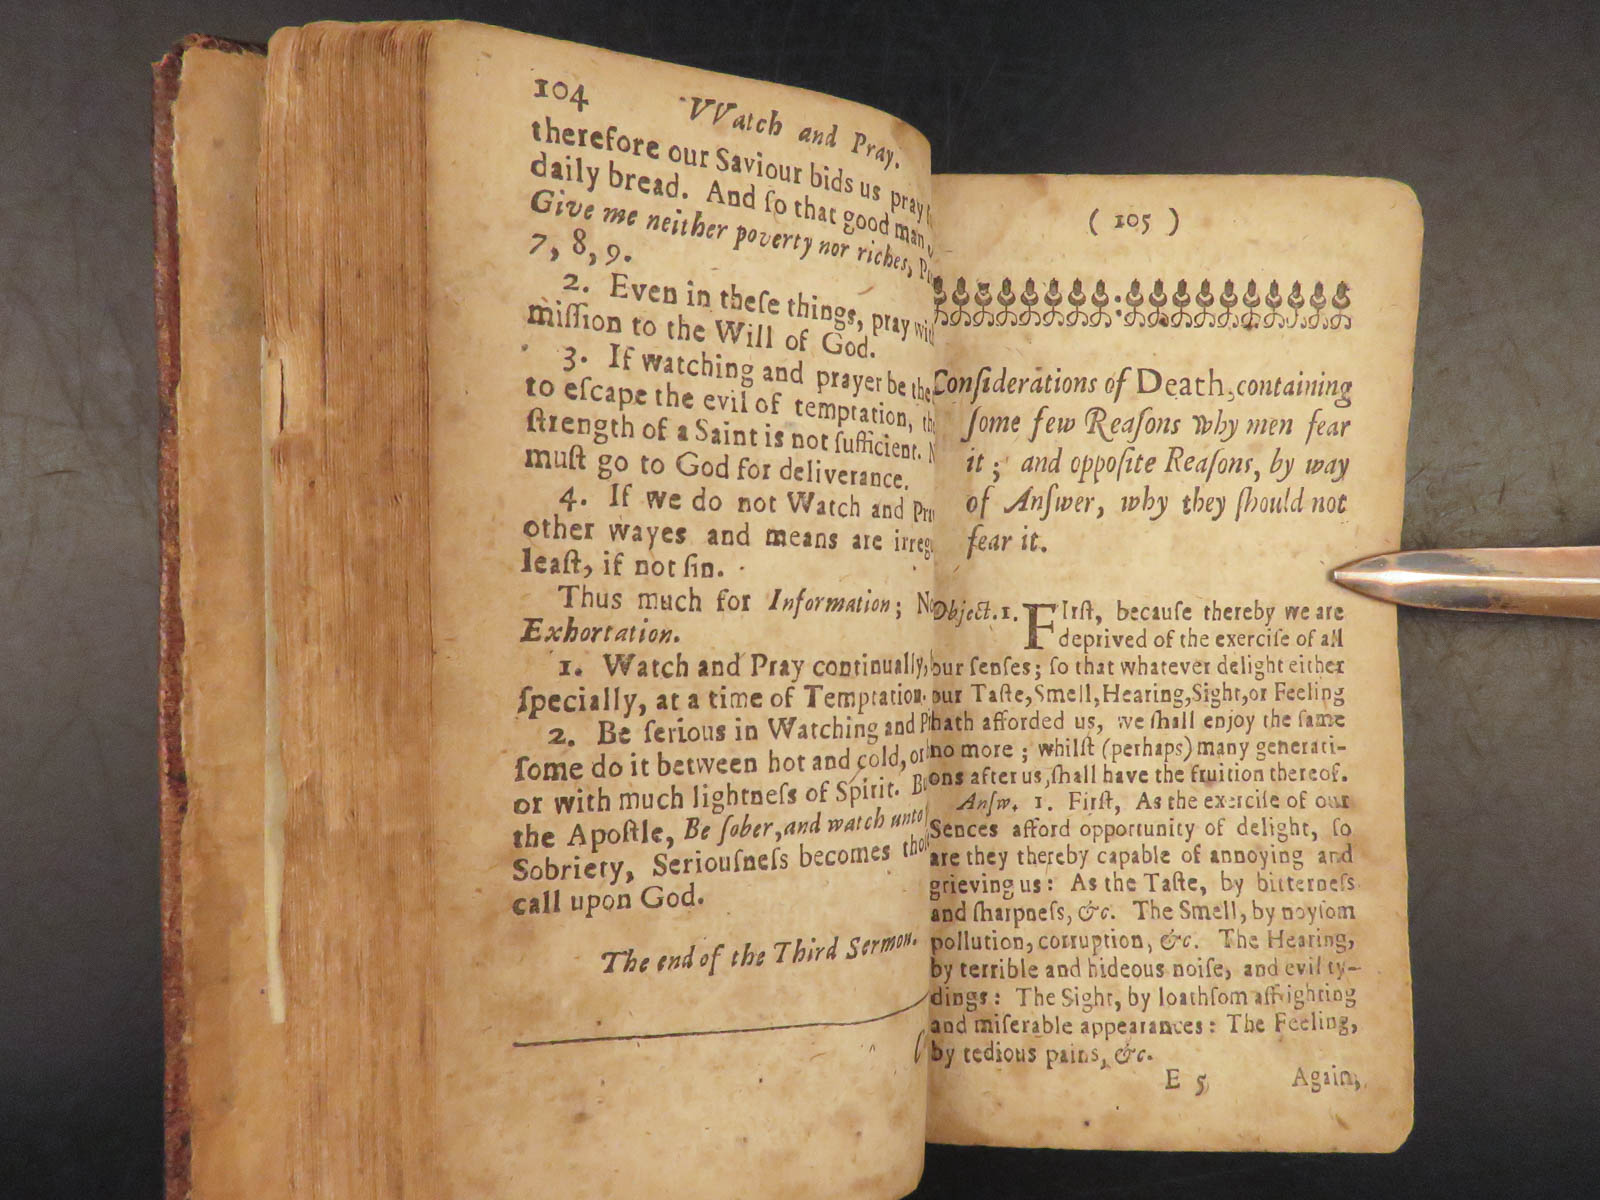 104 VVatch and Pray.
therefore our Saviour bids us pray
daily bread. And ſo that good man
Give me neither poverty nor riches,
7, 8, 9.
2. Even in theſe things, pray
miſſion to the Will of God.
3. If watching and prayer be the
to eſcape the evil of temptation,
ſtrength of a Saint is not ſufficient.
muſt go to God for deliverance.
4. If we do not Watch and
other wayes and means are
leaſt, if not ſin.
Thus much for Information;
Exhortation.
1. Watch and Pray continually,
ſpecially, at a time of Temptation.
2. Be ſerious in Watching and
ſome do it between hot and cold, or
or with much lightneſs of Spirit.
the Apoſtle, Be ſober, and watch unto
Sobriety, Seriouſneſs becomes
call upon God.
The end of the Third Sermon.
( 105 )
Conſiderations of Death, containing
ſome few Reaſons why men fear
it; and oppoſite Reaſons, by way
of Anſwer, why they ſhould not
fear it.
Object. 1. FIrſt, becauſe thereby we are
deprived of the exerciſe of all
our ſenſes; ſo that whatever delight either
our Taſte, Smell, Hearing, Sight, or Feeling
hath afforded us, we ſhall enjoy the ſame
no more; whilſt (perhaps) many generati-
ons after us, ſhall have the fruition thereof.
Anſw. 1. Firſt, As the exerciſe of our
Sences afford opportunity of delight, ſo
are they thereby capable of annoying and
grieving us: As the Taſte, by bitterneſs
and ſharpneſs, &c. The Smell, by noyſom
pollution, corruption, &c. The Hearing,
by terrible and hideous noiſe, and evil ty-
dings: The Sight, by loathſom affrighting
and miſerable appearances: The Feeling,
by tedious pains, &c.
E 5 Again,